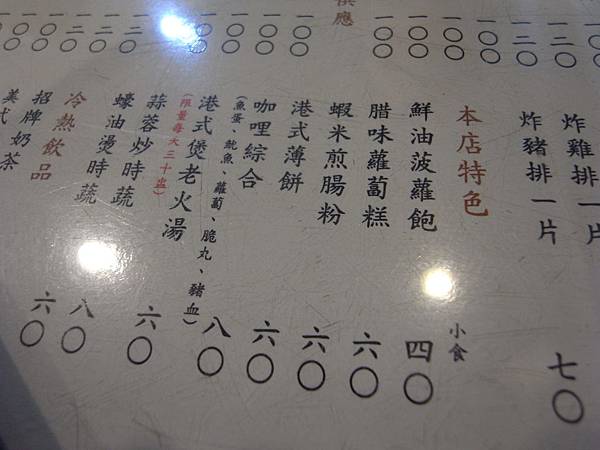 供應
一〇〇
一〇〇
一〇〇
一二〇
一〇〇
一〇〇
一〇〇
炸雞排一片
炸豬排一片
七〇
本店特色
小食
鮮油菠蘿飽
四〇
腊味蘿蔔糕
六〇
蝦米煎腸粉
六〇
港式薄餅
六〇
咖哩綜合
(魚蛋、魷魚、蘿蔔、脆丸、豬血)
八〇
港式煲老火湯
(限量每天三十盅)
六〇
蒜蓉炒時蔬
八〇
蠔油燙時蔬
六〇
冷熱飲品
招牌奶茶
美式